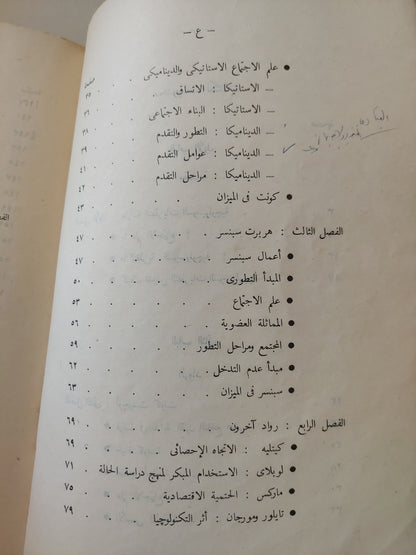 — ع —
صفحة
● علم الاجتماع الاستاتيكى والديناميكى . .
— الاستاتيكا : الاتساق . . . . ٣٦
— الاستاتيكا : البناء الاجتماعى . . . ٣٧
— الديناميكا : التطور والتقدم . . . ٣٨
— الديناميكا : عوامل التقدم . . . ٤١
— الديناميكا : مراحل التقدم . . . ٤٢
● كونت فى الميزان . . . . . ٤٣
الفصل الثالث : هربرت سبنسر . . . . . ٤٧
● أعمال سبنسر . . . . . ٤٧
● المبدأ التطورى . . . . . ٥٠
● علم الاجتماع . . . . . ٥٣
● المماثلة العضوية . . . . . ٥٦
● المجتمع ومراحل التطور . . . . ٥٩
● مبدأ عدم التدخل . . . . . ٦٢
● سبنسر فى الميزان . . . . . ٦٣
الفصل الرابع : رواد آخرون . . . . . ٦٩
● كيتليه : الاتجاه الإحصائى . . . . ٦٩
● لوبلاى : الاستخدام المبكر لمنهج دراسة الحالة ٧١
● ماركس : الحتمية الاقتصادية . . . ٧٥
● تايلور ومورجان : أثر التكنولوچيا . . ٧٩